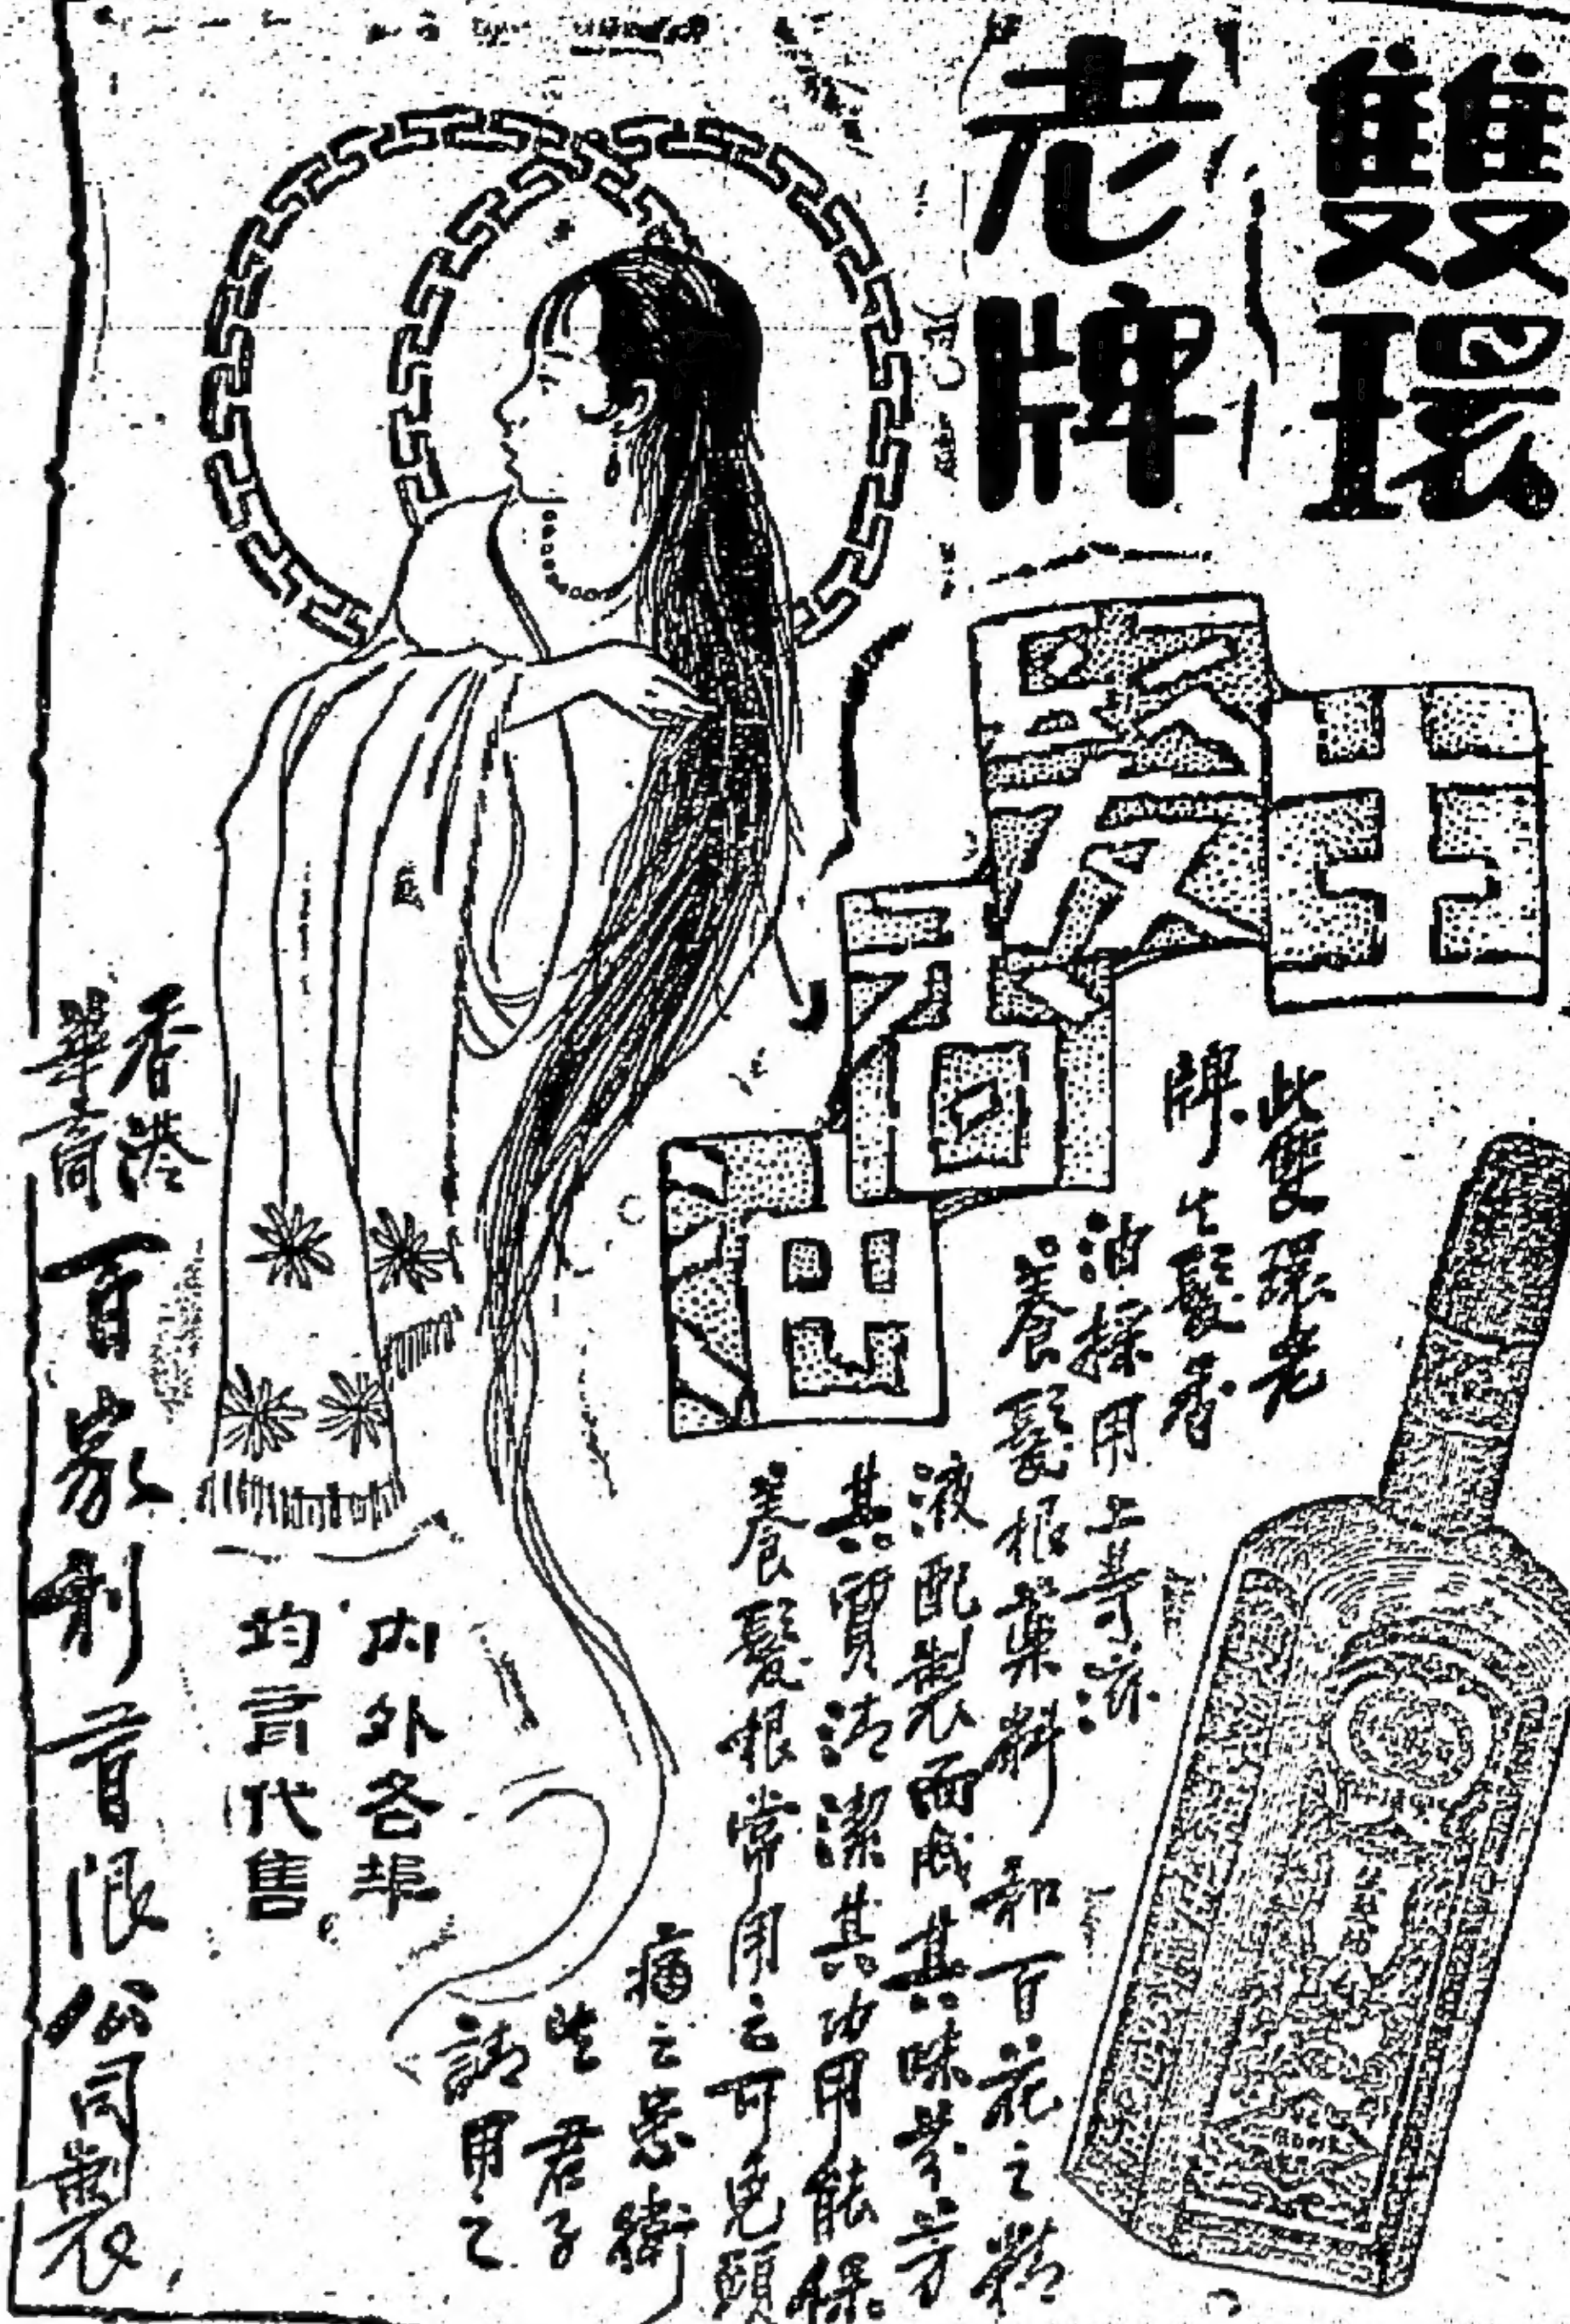 雙環
老牌
生髮香油
此雙環老
牌生髮香
油採用上等涼
養髮根藥料和百花之精
液配製而成其味芬芳
其質清潔其功用能保
養髮根常用之可免頭
痛之患衛
生君子
請用之
內外各埠
均有代售
香港
華商
百家利有限公司製